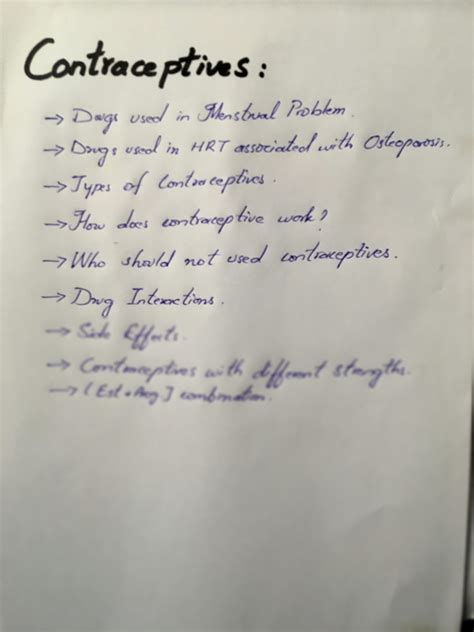 Contraceptives :
→ Drugs used in Menstrual Problem.
→ Drugs used in HRT associated with Osteoporosis.
→ Types of Contraceptives.
→ How does contraceptive work?
→ Who should not used contraceptives.
→ Drug Interactions.
→ Side Effects.
→ Contraceptives with different strengths.
→ [Est + Prog] combination.